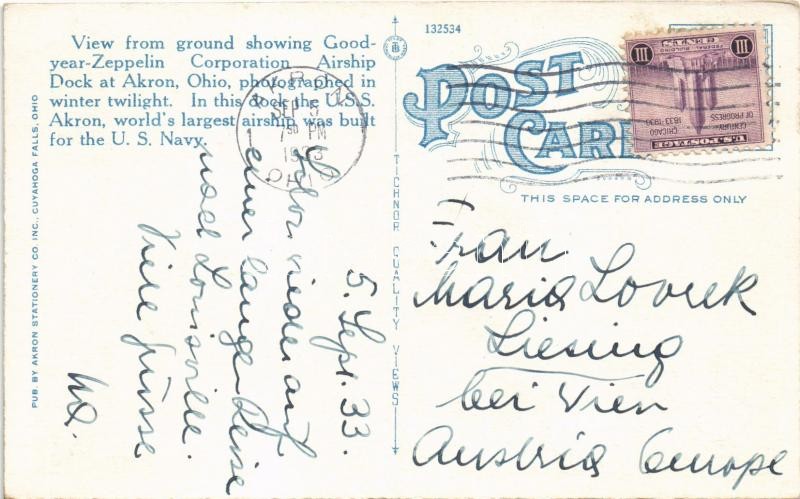 View from ground showing Good-
year-Zeppelin Corporation Airship
Dock at Akron, Ohio, photographed in
winter twilight. In this dock the U.S.S.
Akron, world's largest airship was built
for the U. S. Navy.
PUB. BY AKRON STATIONERY CO. INC., CUYAHOGA FALLS, OHIO
5. Sept. 33.
wieder auf
einer langen Reise
nach Louisville.
Viele Grüsse
TICHNOR QUALITY VIEWS
132534
POST
CARD
THIS SPACE FOR ADDRESS ONLY
AKRON
SEP 5
7 30 PM
1933
OHIO
U.S. POSTAGE
CENTURY OF PROGRESS
CHICAGO
1833-1933
FEDERAL BUILDING
III CENTS III
Frau
Maria Lovrek
Liesing
bei Wien
Austria Europe